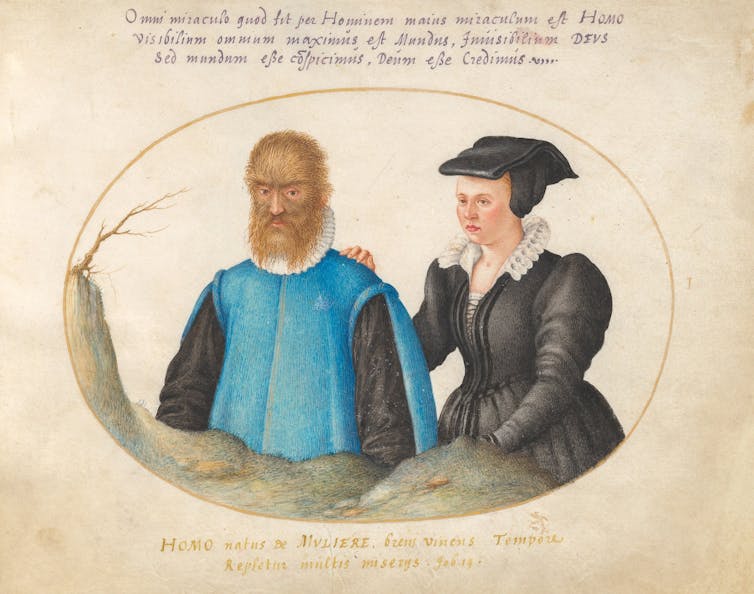 Omni miraculo quod fit per Hominem maius miraculum est HOMO
Visibilium omnium maximus est Mundus, Invisibilium DEVS
Sed mundum eße cospicimus, Deum eße Credimus
I
HOMO natus de MVLIERE, brevi vivens Tempore
Repletur multis miserys. Job 14.